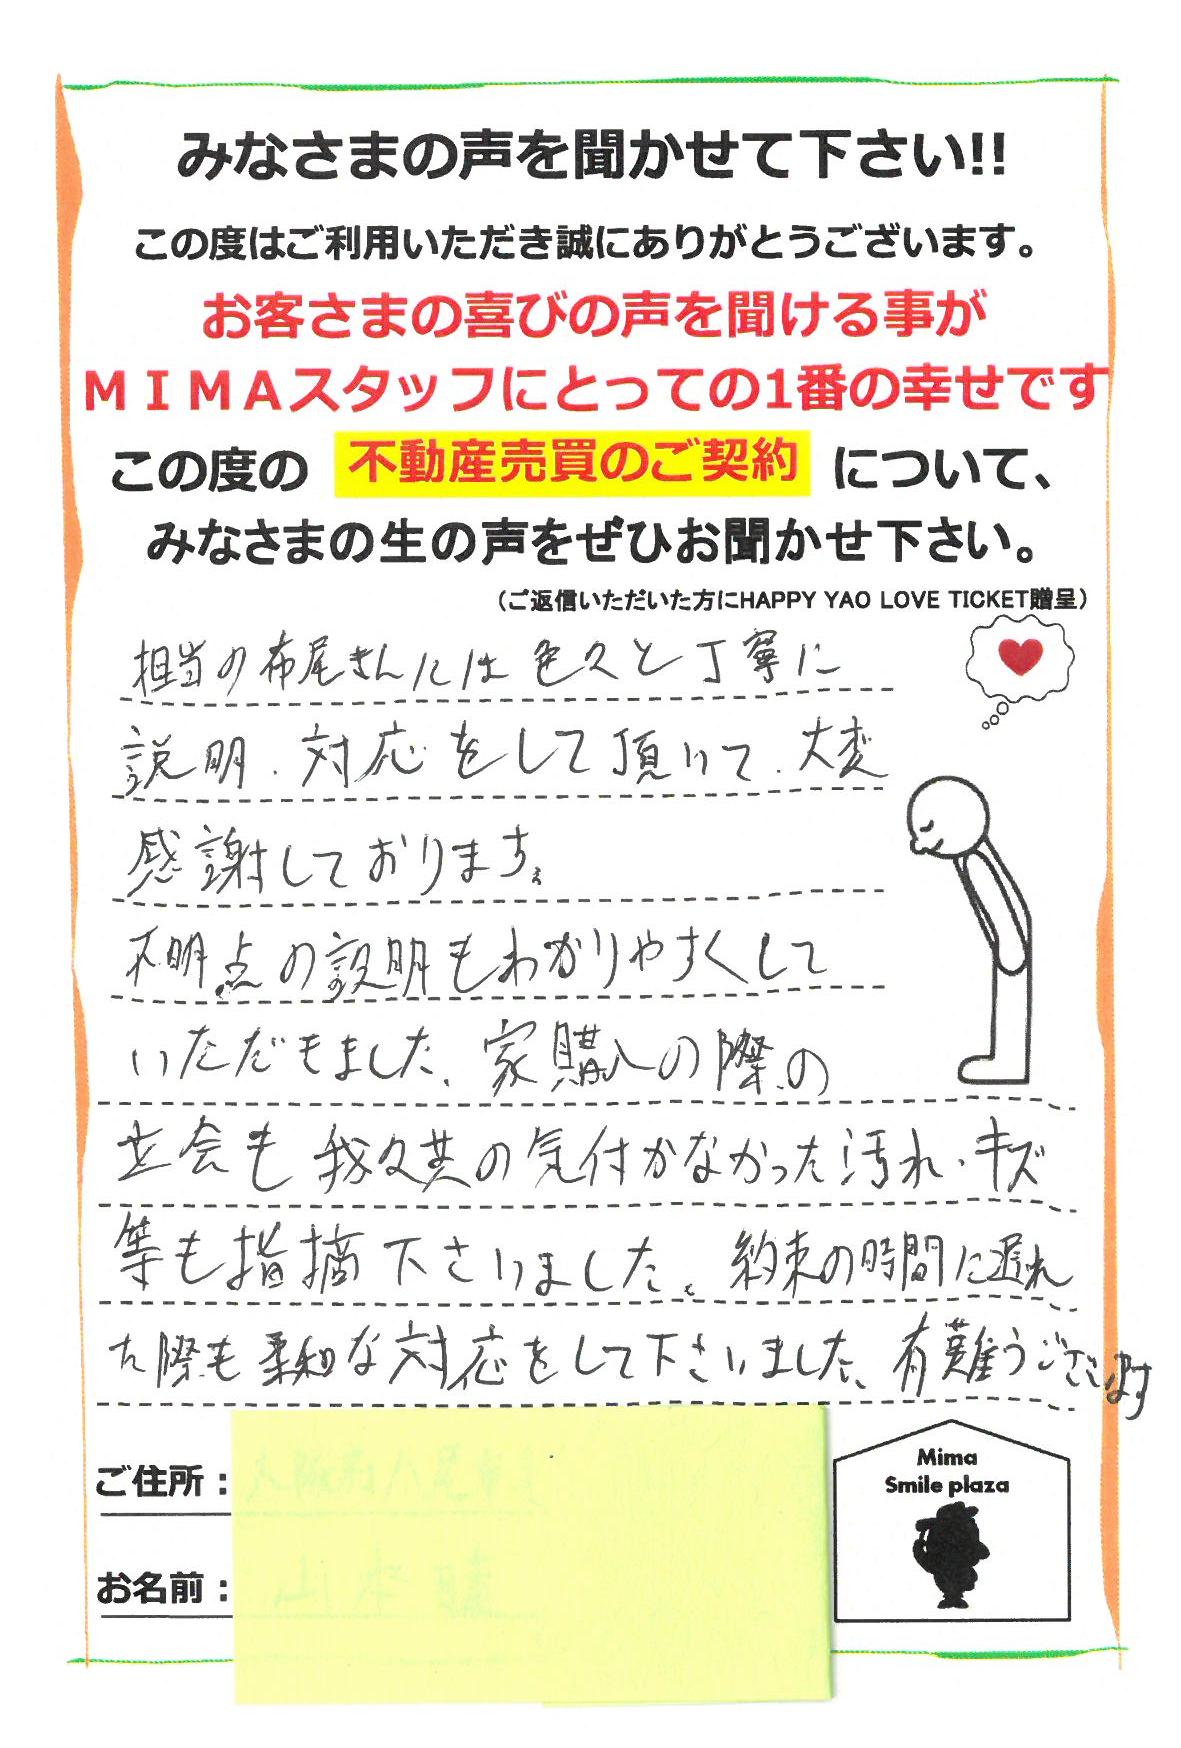 みなさまの声を聞かせて下さい!!
この度はご利用いただき誠にありがとうございます。
お客さまの喜びの声を聞ける事が
ＭＩＭＡスタッフにとっての1番の幸せです
この度の 不動産売買のご契約 について、
みなさまの生の声をぜひお聞かせ下さい。
（ご返信いただいた方にHAPPY YAO LOVE TICKET贈呈）
担当の布尾さんには色々と丁寧に
説明、対応をして頂いて、大変
感謝しております。
不明点の説明もわかりやすくして
いただきました。家購入の際の
立会も我々共の気付かなかった汚れ・キズ
等も指摘下さいました。約束の時間に遅れ
た際も柔和な対応をして下さいました、有難うございます
ご住所：
お名前：
Mima
Smile plaza